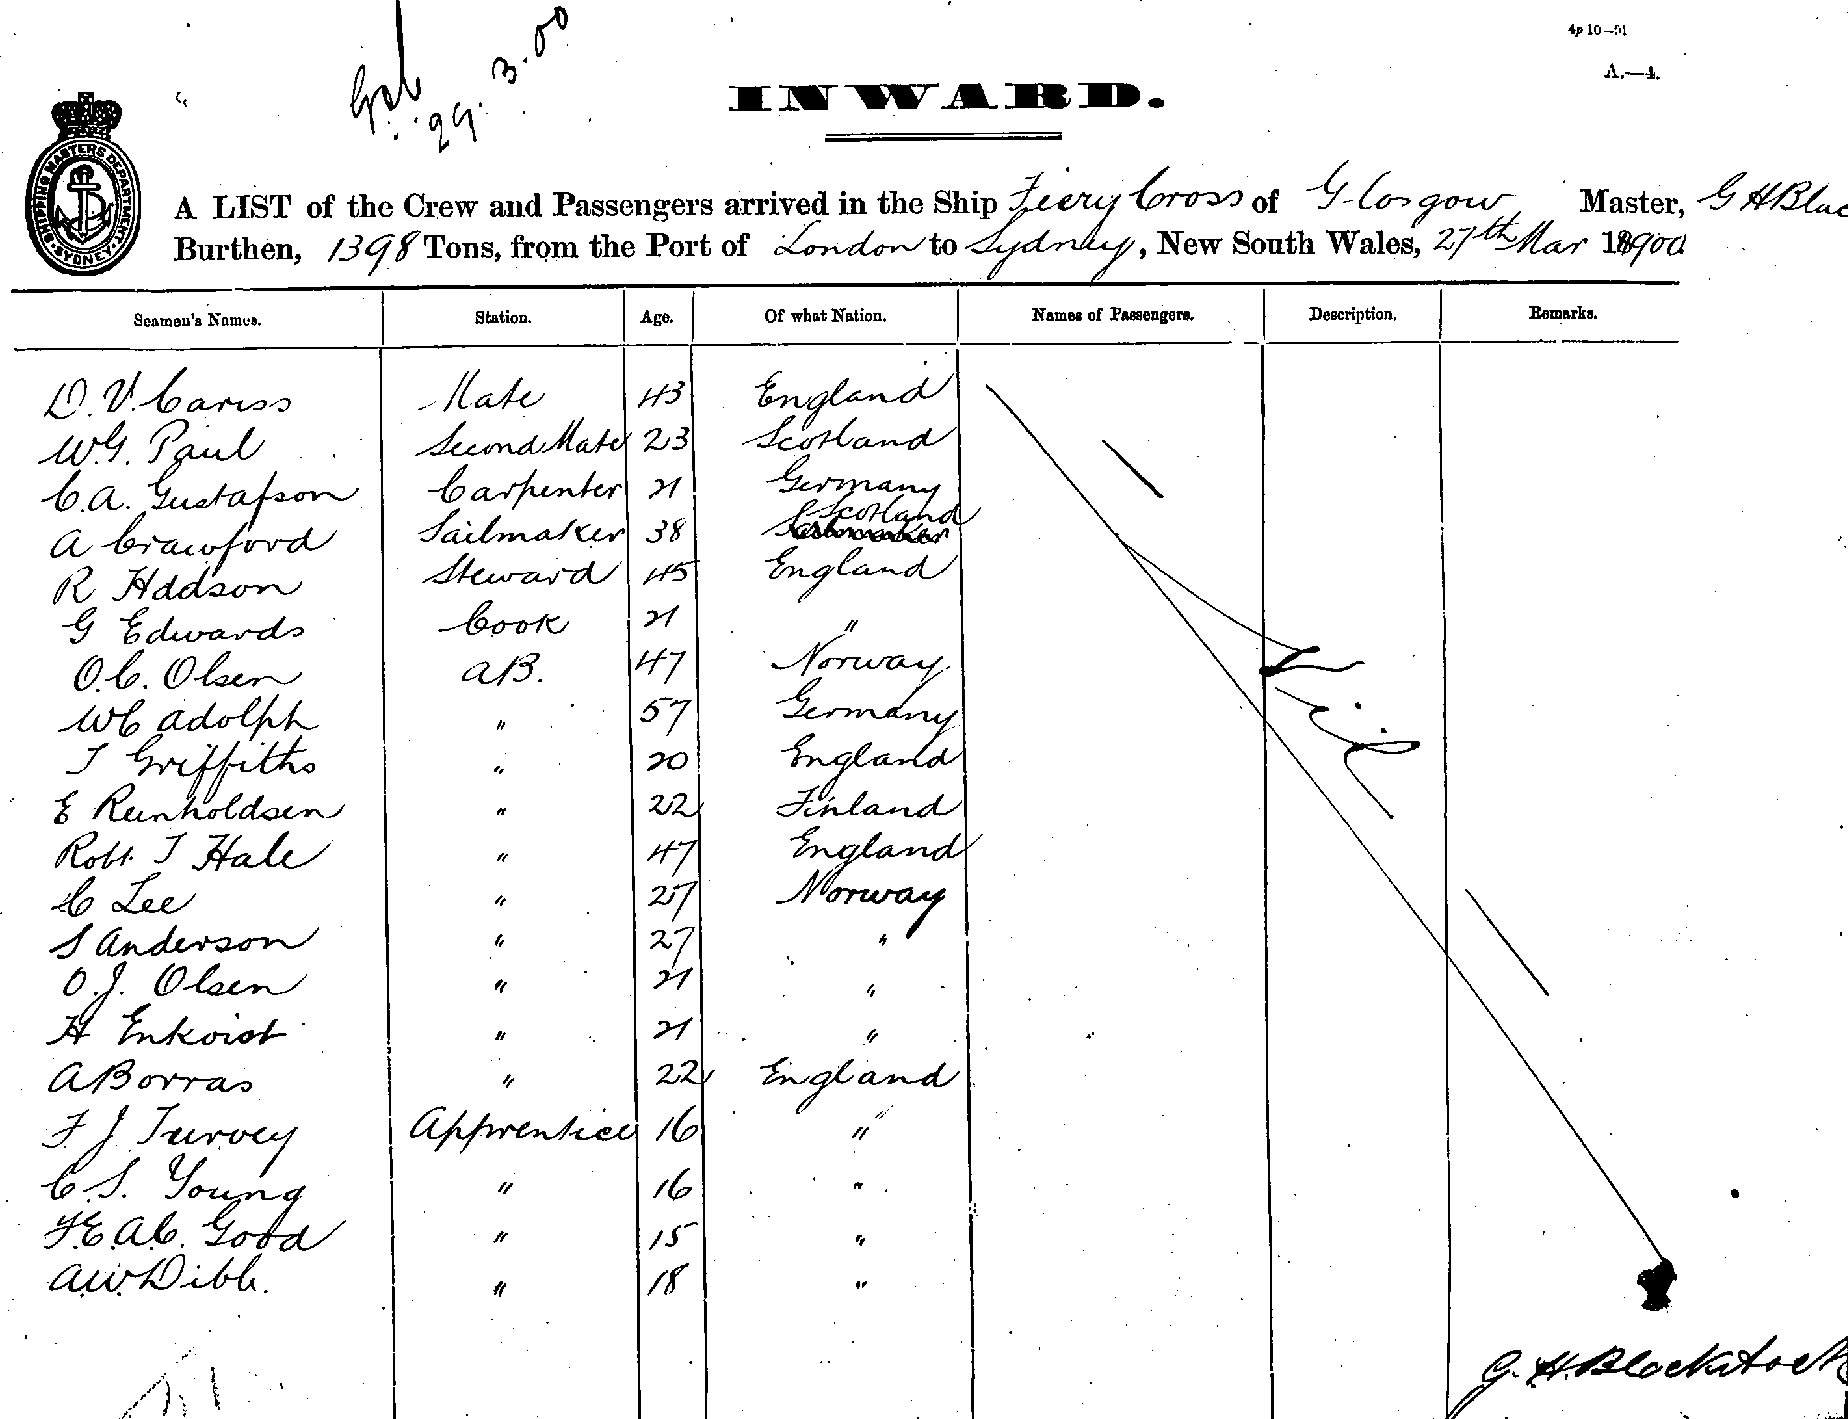 4p 10—91
A.—4.
29.3.00
INWARD.
SHIPPING MASTERS DEPARTMENT SYDNEY
A LIST of the Crew and Passengers arrived in the Ship Fiery Cross of Glasgow Master, G H Blac
Burthen, 1398 Tons, from the Port of London to Sydney, New South Wales, 27th Mar 1900
Seamen's Names. Station. Age. Of what Nation. Names of Passengers. Description. Remarks.
D. V. Cariss Mate 43 England
W. G. Paul Second Mate 23 Scotland
C. A. Gustafson Carpenter 21 Germany
A Crawford Sailmaker 38 Scotland
R Hddson Steward 45 England
G Edwards Cook 21 "
O. C. Olsen AB. 47 Norway
W C Adolph " 57 Germany
T Griffiths " 20 England
E Reinholdsen " 22 Finland
Robt. T Hale " 47 England
C Lee " 27 Norway
S Anderson " 27 "
O. J. Olsen " 21 "
H Enkvist " 21 "
A Borras " 22 England
F. J. Turvey Apprentice 16 "
C. S. Young " 16 "
F. E. A. C. Good " 15 "
A. W. Dible. " 18 "
G. H. Blackstock